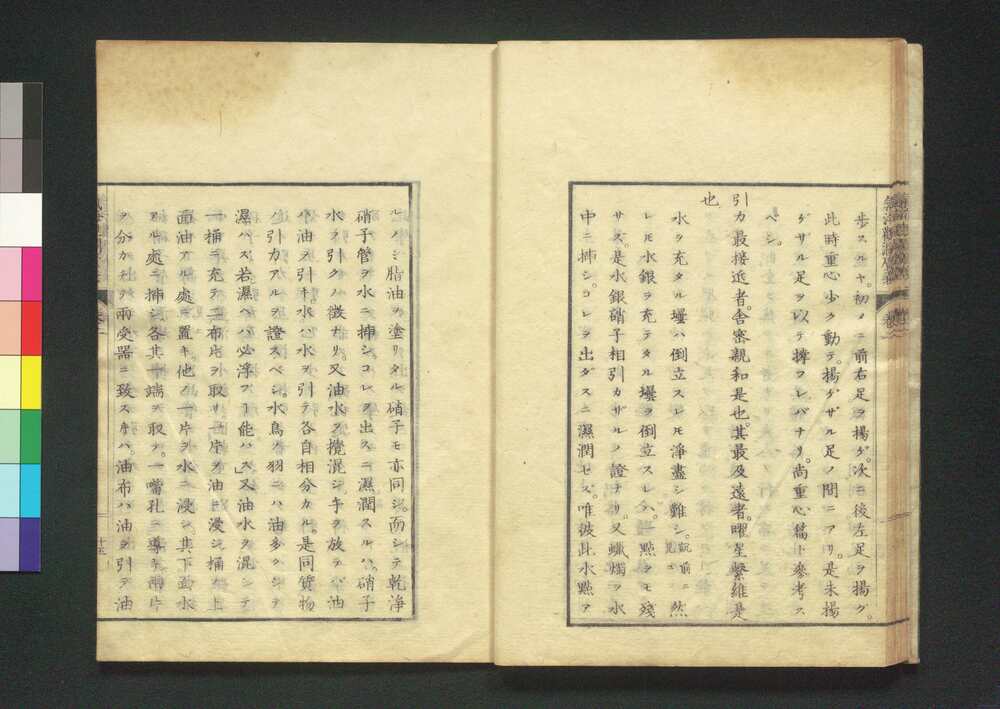 歩スルヤ。初メニ前右足ヲ揚ゲ。次ニ後左足ヲ揚グ。
此時重心少ク動テ。揚ゲザル足ノ間ニアリ。是未揚
ゲザル足ヲ以テ撑フレバナリ。尚重心篇ト参考ス
ベシ。
引力最接近者。舎密親和是也。其最及遠者。曜星繋維是
也
水ヲ充タル壜ハ倒立スレモ浄盡シ難シ。既前ニ見ユ 然
レモ水銀ヲ充テタル壜ヲ倒立スレハ。一點ヲモ残
サズ。是水銀硝子相引カザルノ證ナリ。又蠟燭ヲ水
中ニ挿シ。コレヲ出ダスニ濕潤セズ。唯彼此水點ヲ
ルノミ脂油ヲ塗リタル硝子モ亦同シ。而シテ乾浄
硝子管ヲ水ニ挿シコレヲ出スニ濕潤スルハ。硝子
水ヲ引クノ徴ナリ。又油水ヲ攪混シ手ヲ放テバ油
ハ油ヲ引キ。水ハ水ヲ引テ各自相分カル。是同質物
ノ引力アルヲ證スベシ。水鳥ノ羽ニハ油多クシテ
濕ハズ若濕ヘバ必浮フ能ハス又油水ヲ混シテ
一桶ニ充テ二布片ヲ取リ一片ヲ油ニ浸シ桶ノ上
面油アル處ニ置キ。他ノ一片ヲ水ニ浸シ其下面水
アル處ニ挿シ各其一端ヲ取テ。一嘴孔ニ導キ兩片
ヲ分カチテ兩受器ニ致ス寸ハ。油布ハ油ヲ引テ油
十五